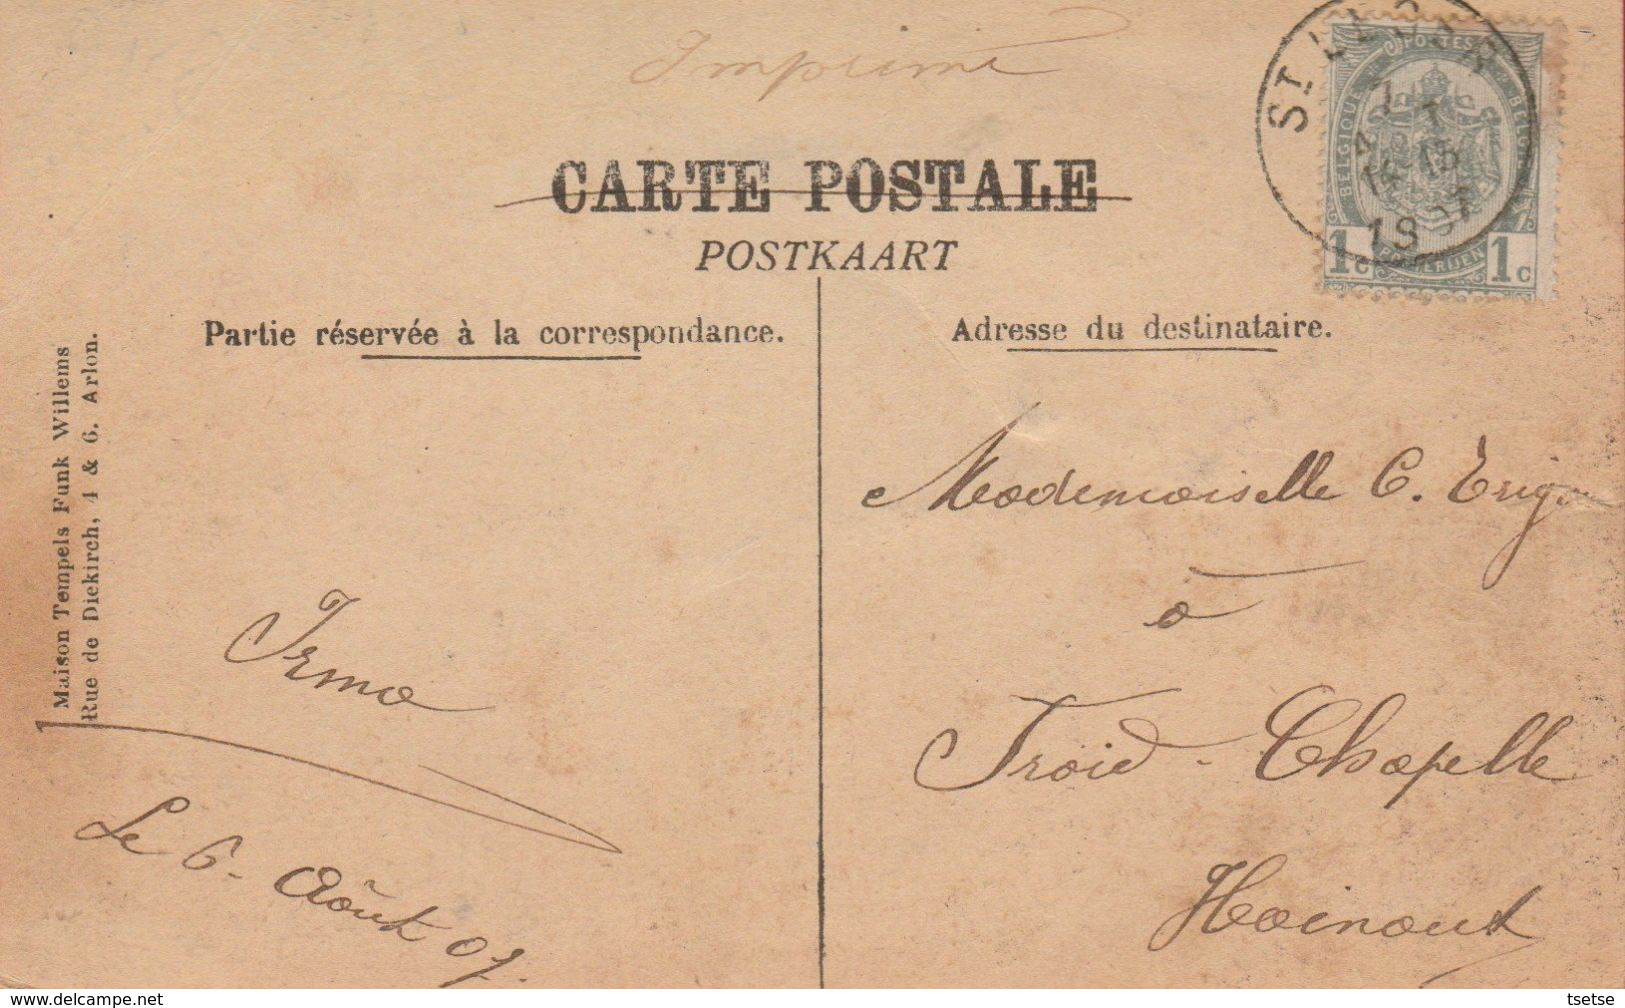 Imprimé
CARTE POSTALE
POSTKAART
Partie réservée à la correspondance.
Adresse du destinataire.
Maison Tempels Funk Willems
Rue de Diekirch, 4 & 6. Arlon.
POSTES
BELGIQUE
1c 1c
Mademoiselle C.
à
Chapelle
Hainaut
Irma
Le 6 - Août 07.
www.delcampe.net
tsetse